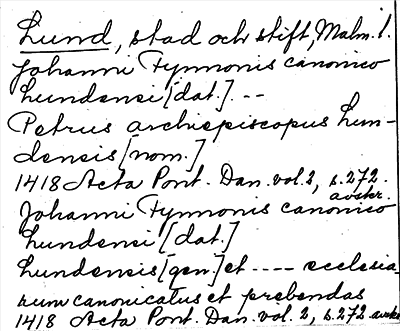 Lund, stad och stift, Malm. l.
Johanni Tynnonis canonico
Lundensi [dat.]. --
Petrus archiepiscopus Lun-
densis [nom.]
1418 Acta Pont. Dan. vol. 2, s. 272.
avskr.
Johanni Tynnonis canonico
Lundensi [dat.]
Lundensis [gen.] et ---- ecclesia-
rum canonicatus et prebendas
1418 Acta Pont. Dan. vol. 2, s. 272 avskr.